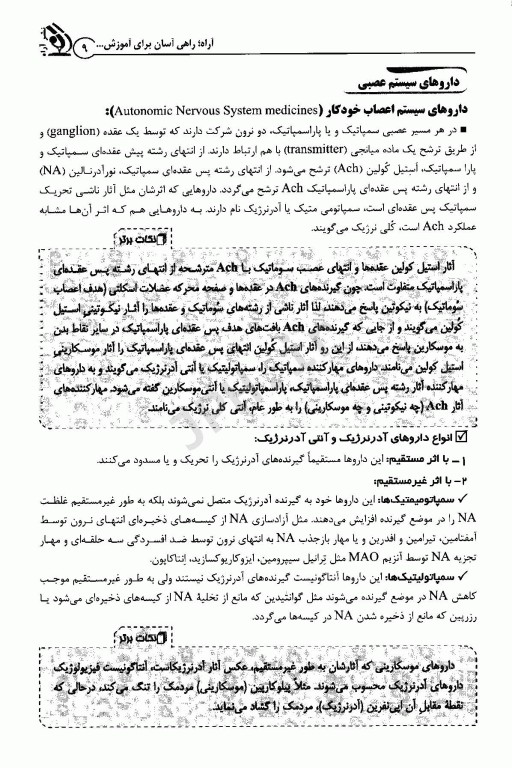 آراه؛ راهی آسان برای آموزش... ۹
داروهای سیستم عصبی
داروهای سیستم اعصاب خودکار (Autonomic Nervous System medicines):
■ در هر مسیر عصبی سمپاتیک و یا پاراسمپاتیک، دو نرون شرکت دارند که توسط یک عقده (ganglion) و
از طریق ترشح یک ماده میانجی (transmitter) با هم ارتباط دارند. از انتهای رشته پیش عقده‌ای سمپاتیک و
پارا سمپاتیک، اَستیل کُولین (Ach) ترشح می‌شود. از انتهای رشته پس عقده‌ای سمپاتیک، نورآدرنالین (NA)
و از انتهای رشته پس عقده‌ای پاراسمپاتیک Ach ترشح می‌گردد. داروهایی که اثرشان مثل آثار ناشی تحریک
سمپاتیک پس عقده‌ای است، سمپاتومی متیک یا آدرنرژیک نام دارند. به داروهایی هم که اثر آن‌ها مشابه
عملکرد Ach است، کُلی نرژیک می‌گویند.
نکات برتر
آثار استیل کولین عقده‌ها و انتهای عصب سوماتیک با Ach مترشحه از انتهای رشته پس عقده‌ای
پاراسمپاتیک متفاوت است. چون گیرنده‌های Ach در عقده‌ها و صفحه محرکه عضلات اسکلتی (هدف اعصاب
سوماتیک) به نیکوتین پاسخ می‌دهند، لذا آثار ناشی از رشته‌های سُوماتیک و عقده‌ها را آثار نیکوتینی استیل
کُولین می‌گویند و از جایی که گیرنده‌های Ach بافت‌های هدف پس عقده‌ای پاراسمپاتیک در سایر نقاط بدن
به موسکارین پاسخ می‌دهند، از این رو آثار استیل کُولین انتهای پس عقده‌ای پاراسمپاتیک را آثار موسکارینی
استیل کولین می‌نامند. داروهای مهارکننده سمپاتیک را، سمپاتولیتیک یا آنتی آدرنرژیک می‌گویند و به داروهای
مهارکننده آثار رشته پس عقده‌ای پاراسمپاتیک، پاراسمپاتولیتیک یا آنتی‌موسکارین گفته می‌شود. مهارکننده‌های
آثار Ach (چه نیکوتینی و چه موسکارینی) را به طور عام، آنتی کلی نرژیک می‌نامند.
☑ انواع داروهای آدرنرژیک و آنتی آدرنرژیک:
۱– با اثر مستقیم: این داروها مستقیماً گیرنده‌های آدرنرژیک را تحریک و یا مسدود می‌کنند.
۲– با اثر غیرمستقیم:
✓ سمپاتومیمتیک‌ها: این داروها خود به گیرنده آدرنرژیک متصل نمی‌شوند بلکه به طور غیرمستقیم غلظت
NA را در موضع گیرنده افزایش می‌دهند. مثل آزادسازی NA از کیسه‌های ذخیره‌ای انتهای نرون توسط
آمفتامین، تیرامین و افدرین و یا مهار بازجذب NA به انتهای نرون توسط ضد افسردگی سه حلقه‌ای و مهار
تجزیه NA توسط آنزیم MAO مثل تِرانیل سیپرومین، ایزوکاربوکسازید، اِنتاکاپون.
✓ سمپاتولیتیک‌ها: این داروها آنتاگونیست گیرنده‌های آدرنرژیک نیستند ولی به طور غیرمستقیم موجب
کاهش NA در موضع گیرنده می‌شوند مثل گوانتیدین که مانع از تخلیهٔ NA از کیسه‌های ذخیره‌ای می‌شود یا
رزرپین که مانع از ذخیره شدن NA در کیسه‌ها می‌گردد.
نکات برتر
داروهای موسکارینی که آثارشان به طور غیرمستقیم، عکس آثار آدرنرژیکاست، آنتاگونیست فیزیولوژیک
داروهای آدرنرژیک محسوب می‌شوند. مثلاً پیلوکارپین (موسکارینی) مردمک را تنگ می‌کند، درحالی که
نقطهٔ مقابل آن اپی‌نفرین (آدرنرژیک)، مردمک را گشاد می‌نماید.